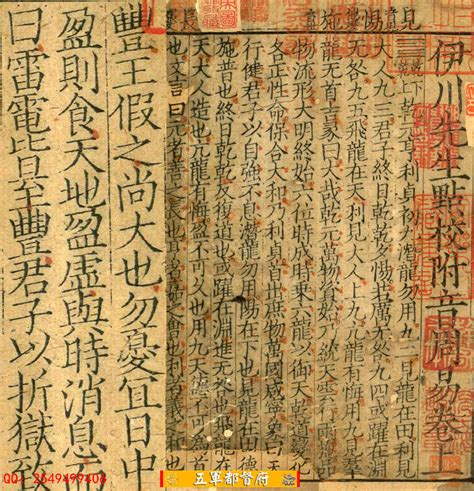 伊川先生點校附音周易卷上
大人九三君子終日乾乾夕惕若厲无咎九四或躍在淵
无咎九五飛龍在天利見大人上九亢龍有悔用九見羣
龍无首吉彖曰大哉乾元萬物資始乃統天雲行雨施品
物流形大明終始六位時成時乘六龍以御天乾道變化
各正性命保合大和乃利貞首出庶物萬國咸寧象曰天
行健君子以自強不息潛龍勿用陽在下也見龍在田德
施普也終日乾乾反復道也或躍在淵進无咎也飛龍在
天大人造也亢龍有悔盈不可久也用九天德不可為首
也文言曰元者善之長也
豐王假之尚大也勿憂宜日中
盈則食天地盈虛與時消息而
曰雷電皆至豐君子以折獄致
QQ: 2549499408
五軍都督府